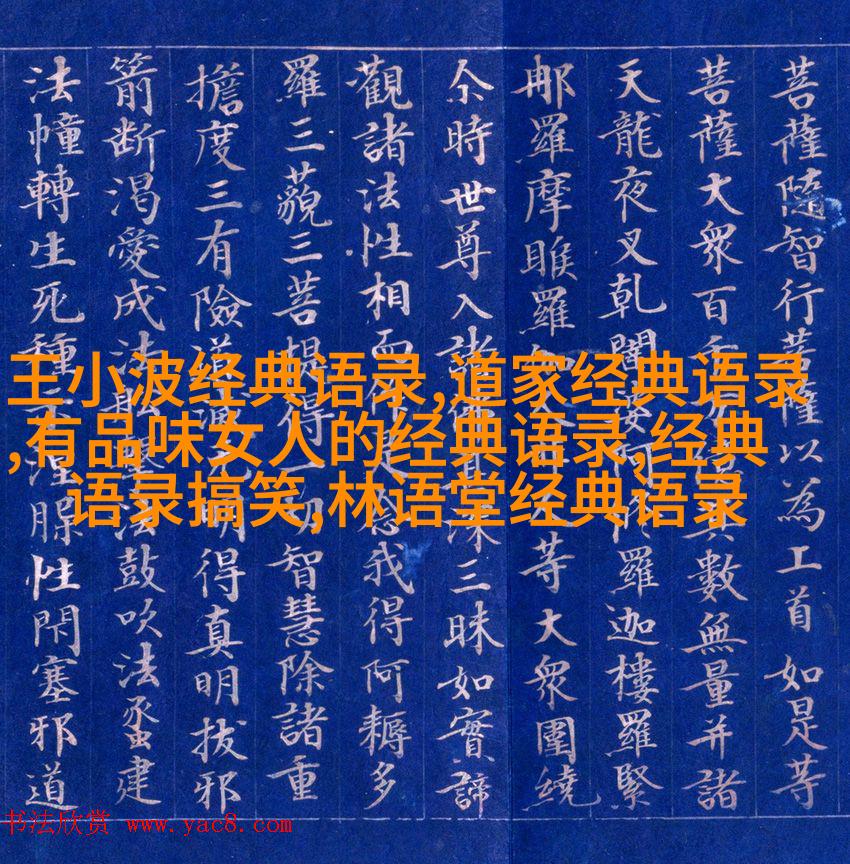 菩薩隨智行菩薩以為工首如是等
菩薩大眾百千其數無量并諸
天龍夜叉乾闥婆阿脩羅迦樓羅緊
那羅摩睺羅伽人非人等大眾圍繞
尒時世尊入諸佛甚深三昧如實諦
觀諸法性相而作是念我得阿耨多
羅三藐三菩提得一切智慧除諸重
擔度三有險道滅明得真明拔邪
箭断渴愛成法船擊法鼓吹法蠡建
法幢轉生死種示涅脲性閇塞邪道
王小波经典语录,道家经典语录
,有品味女人的经典语录,经典
语录搞笑,林语堂经典语录
书法欣赏 www.yac8.com